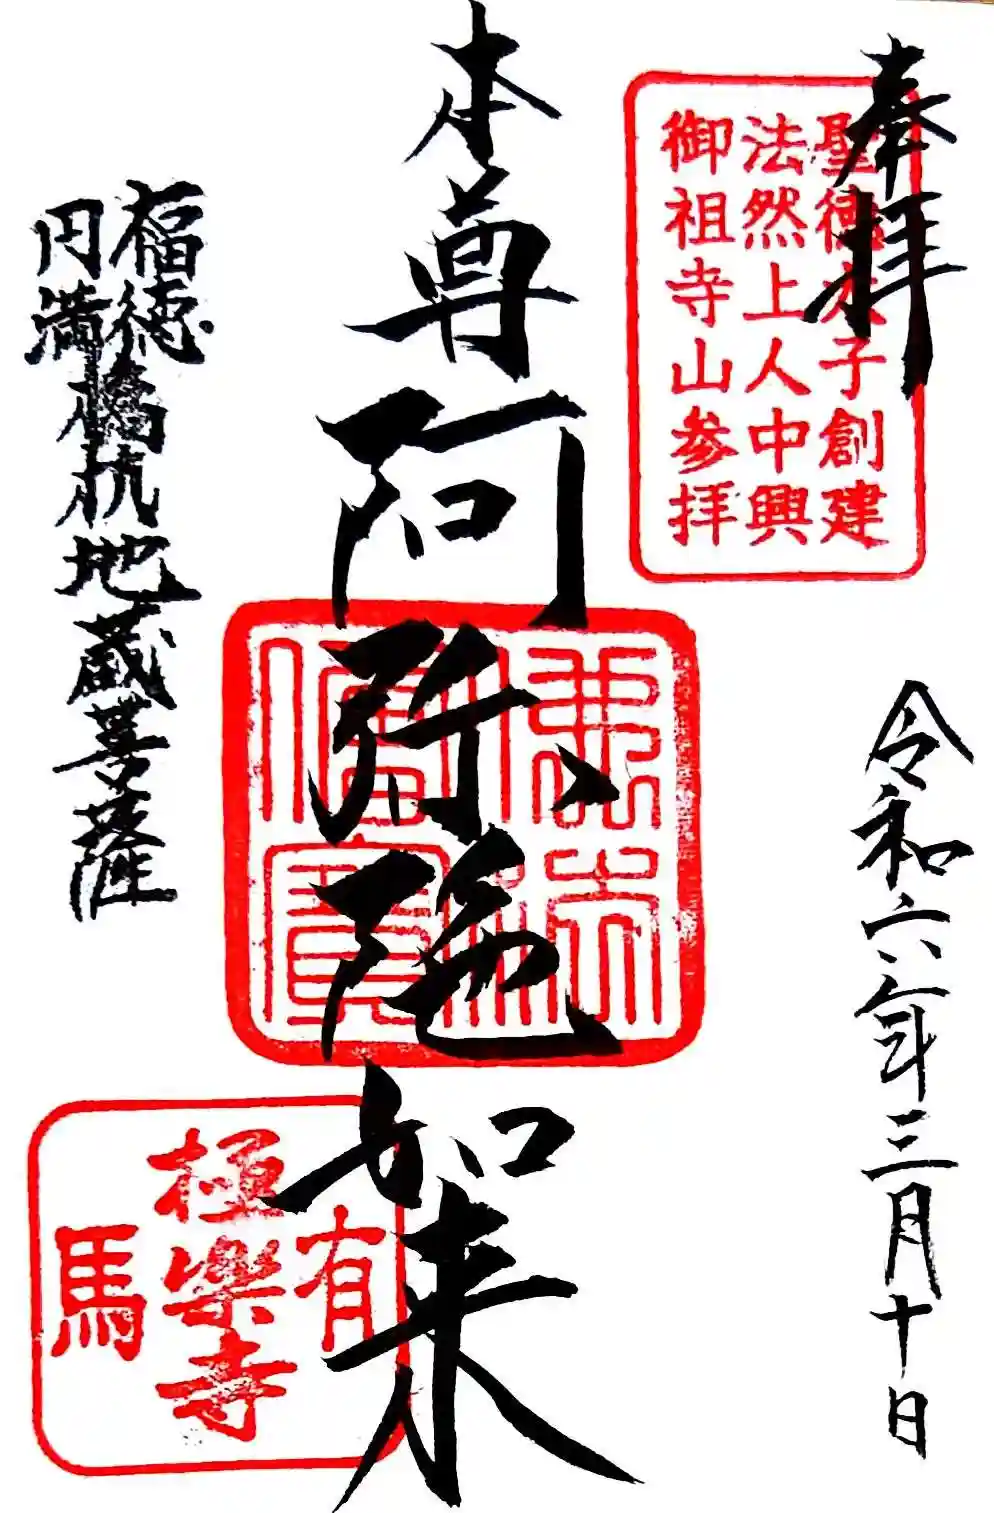 奉拝
聖徳太子創建
法然上人中興
御祖寺山参拝
令和六年三月十日
本尊阿弥陀如来
佛法僧寳
福徳
円満
橋杭地蔵菩薩
有馬
極楽寺